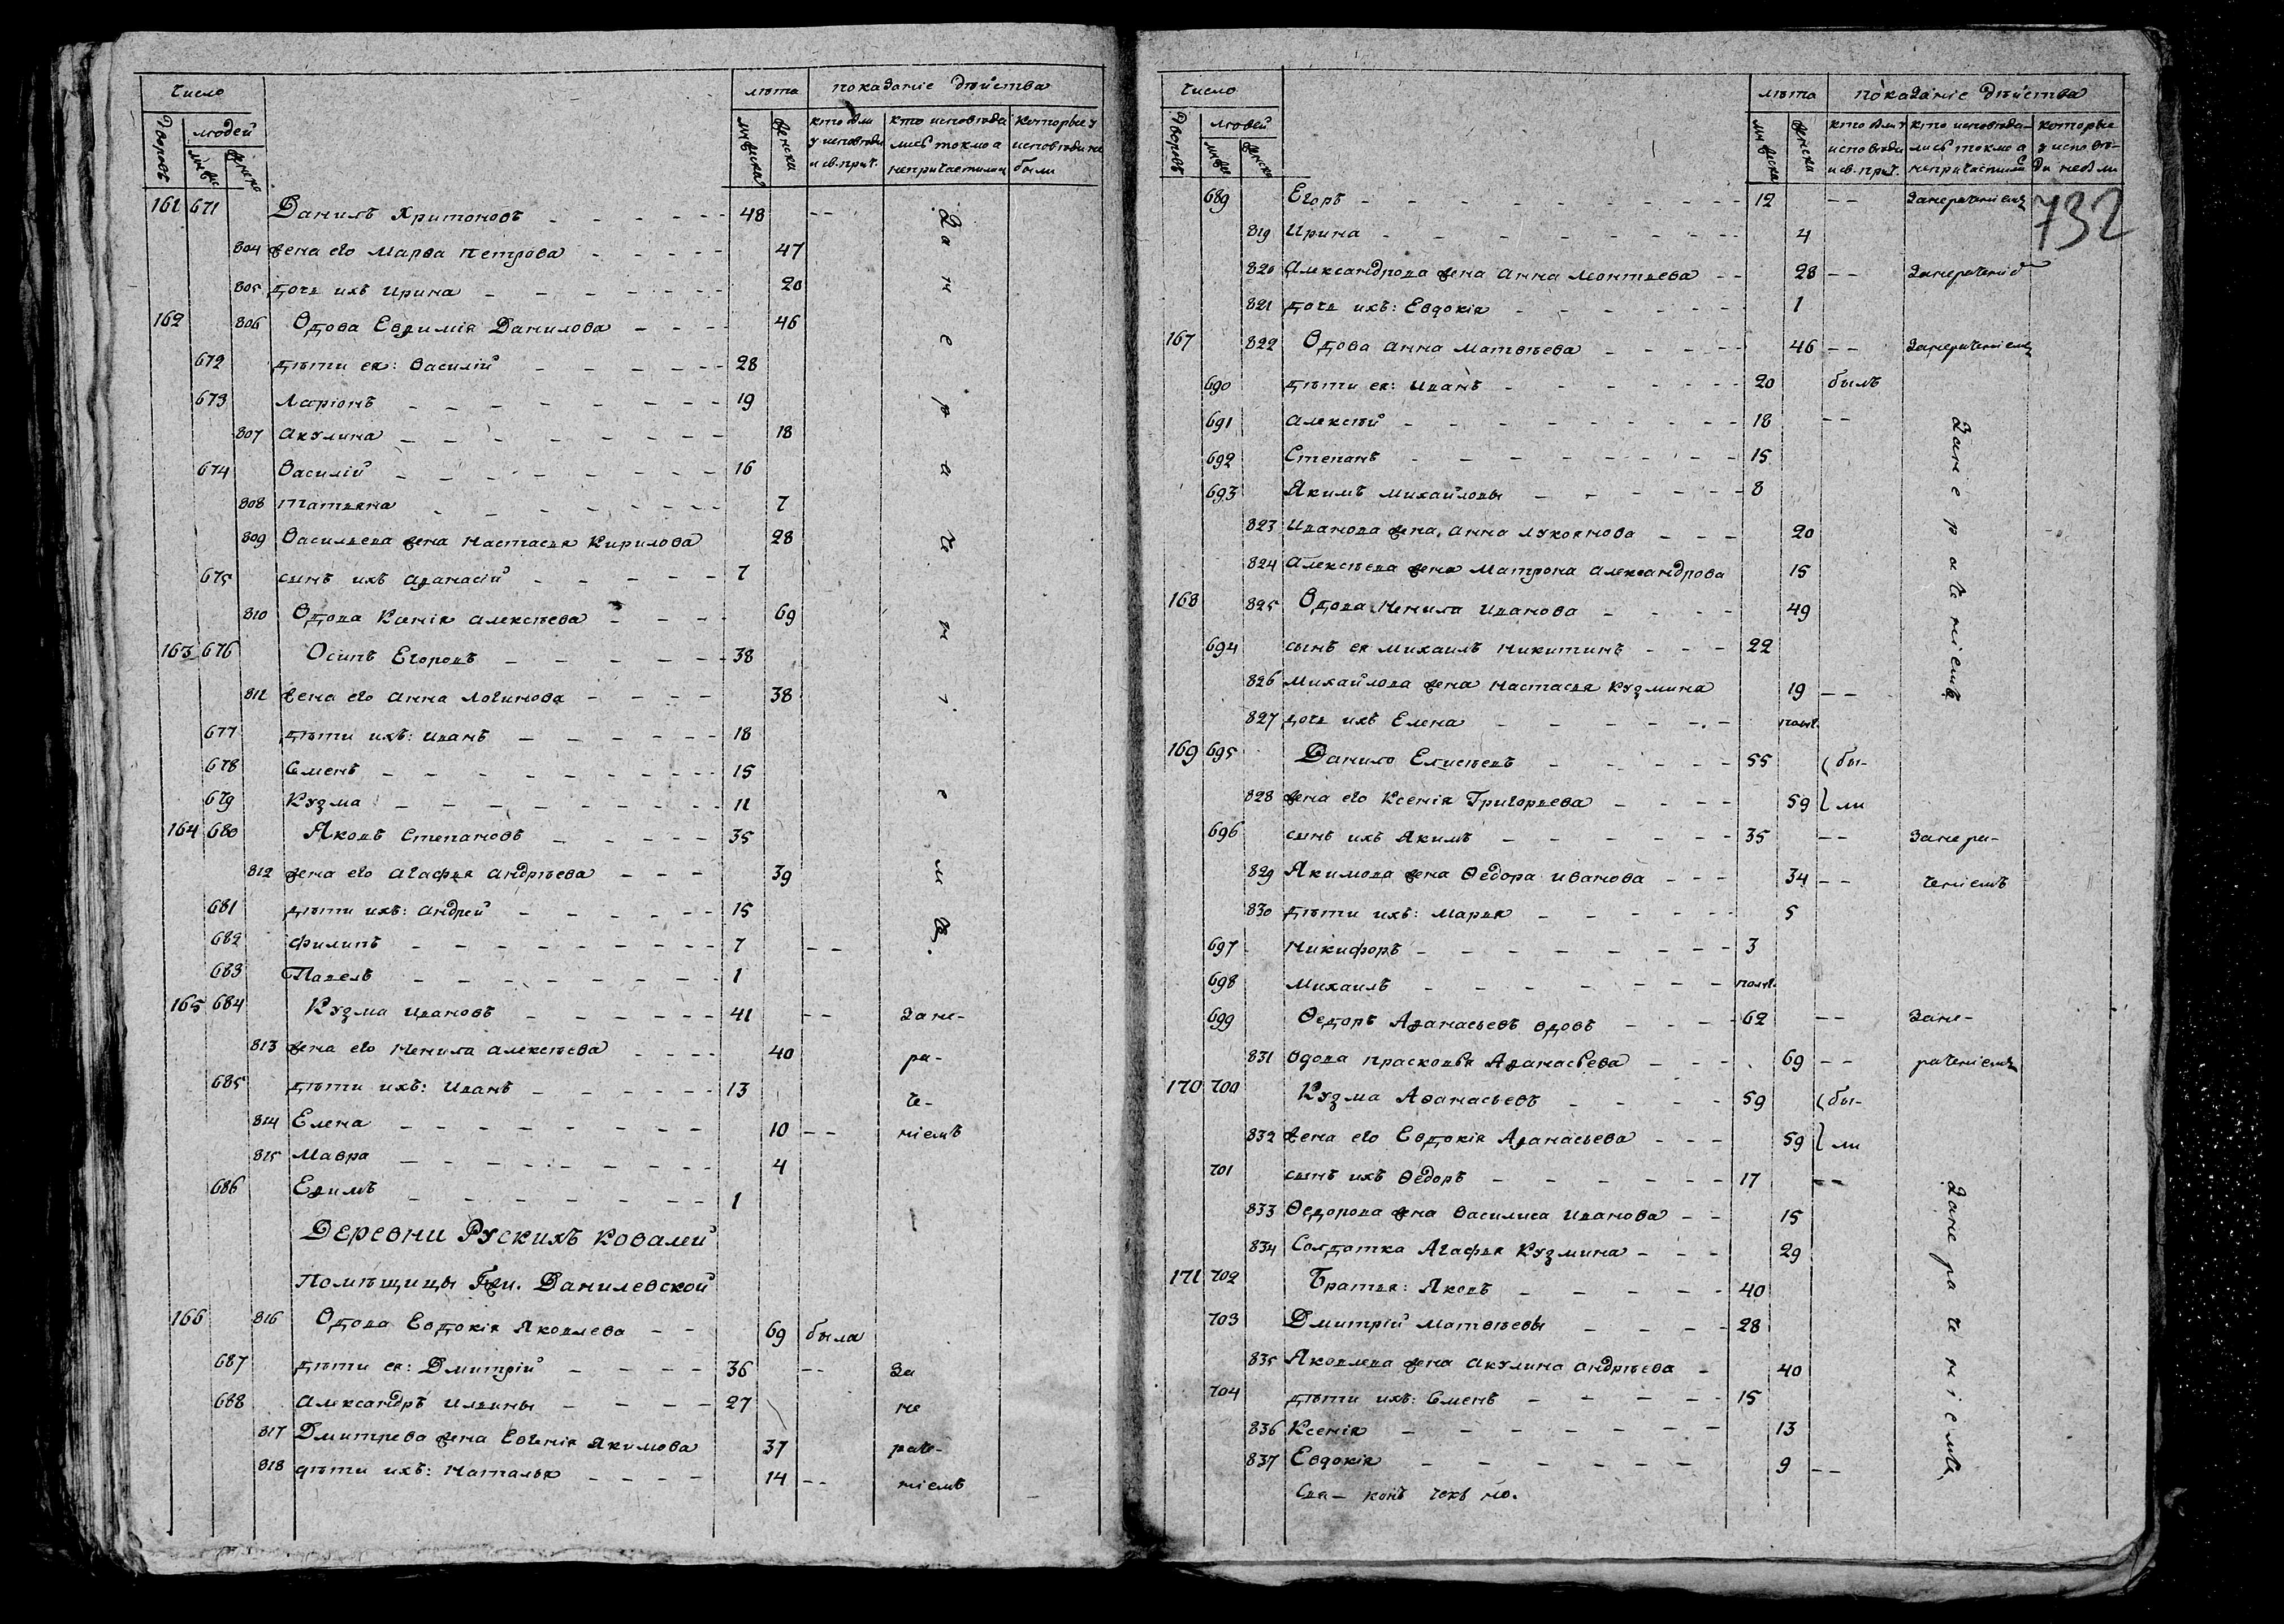 Число лѣта показаніе дѣйства
Дворовъ людей мужеска женска кто былъ у исповѣди и св. прич. кто исповѣда лись токмо а непричастился которые у исповѣди не были
161 671 Данилъ Хритоновъ 48
804 жена его Марѳа Петрова 47
805 дочь ихъ Ирина 20
162 806 Вдова Евѳимія Данилова 46
672 дѣти ея: Василій 28
673 Ларіонъ 19
807 Акулина 18
674 Василій 16
808 Татьяна 7
809 Васильева жена Настасья Кирилова 28
675 сынъ ихъ Аѳанасій 7
810 Вдова Ксенія Алексѣева 69
163 676 Осипъ Егоровъ 38
811 жена его Анна Логинова 38
677 дѣти ихъ: Иванъ 18
678 Семенъ 15
679 Кузма 11
164 680 Яковъ Степановъ 35
812 жена его Агафья Андрѣева 39
681 дѣти ихъ: Андрей 15
682 Филипъ 7
683 Павелъ 1
За не ра че ні е мъ.
165 684 Кузма Ивановъ 41 Зане-
813 жена его Ненила Алексѣева 40 ра-
685 дѣти ихъ: Иванъ 13 че-
814 Елена 10 ніемъ
815 Мавра 4
686 Еѳимъ 1
Деревни Рускихъ Ковалей
Помѣщицы Гжи. Данилевской
166 816 Вдова Евдокія Яковлева 69 была
687 дѣти ея: Дмитрій 36 За
688 Александръ Ильины 27 не
817 Дмитрева жена Евгенія Якимова 37 раче-
818 дѣти ихъ: Наталья 14 ніемъ
Число лѣта показаніе дѣйства
Дворовъ людей мужеска женска кто былъ у исповѣди и св. прич. кто исповѣда- лись токмо а непричастился которые у исповѣ- ди небыли
732
689 Егоръ 12 Занераченіемъ
819 Ирина 4
820 Александрова жена Анна Монтѣева 28 Занерачені
821 дочь ихъ: Евдокія 1
167 822 Вдова Анна Матвѣева 46 Занераченіемъ
690 дѣти ея: Иванъ 20 былъ
691 Алексѣй 18
692 Степанъ 15
693 Якимъ Михайловы 8
823 Иванова жена Анна Лукоянова 20
824 Алексѣева жена Матрона Александрова 15
168 825 Вдова Ненила Иванова 49
694 сынъ ея Михаилъ Никитинъ 22
826 Михайлова жена Настасья Кузмина 19
Занераченіемъ
827 дочь ихъ Елена полг.
169 695 Данило Елисѣевъ 55 бы-
828 жена его Ксенія Григорьева 59 ли
696 сынъ ихъ Якимъ 35 Занера-
829 Якимова жена Ѳедора Иванова 34 ченіемъ
830 дѣти ихъ: Марья 5
697 Никифоръ 3
698 Михаилъ полг.
699 Ѳедоръ Аѳанасьевъ вдовъ 62 Зане-
831 Вдова Прасковья Аѳанасьева 69 раченіемъ
170 700 Кузма Аѳанасьевъ 59 бы-
832 жена его Евдокія Аѳанасьева 59 ли
701 сынъ ихъ Ѳедоръ 17
833 Ѳедорова жена Василиса Иванова 15
834 Солдатка Агафья Кузмина 29
171 702 Братья: Яковъ 40
703 Дмитрій Матвѣевы 28
835 Яковлева жена Акулина Андрѣева 40
704 дѣти ихъ: Семенъ 15
836 Ксенія 13
837 Евдокія 9
Занераченіемъ